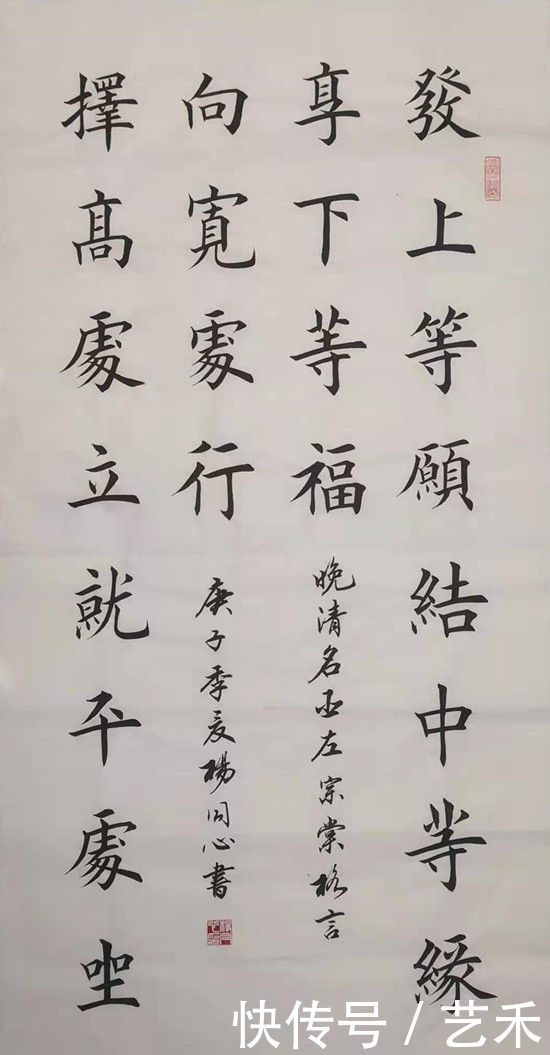 發上等願結中等緣
享下等福
擇高處立就平處坐
向寬處行
晚清名丞左宗棠格言
庚子季夏楊同心書
快传号/艺禾